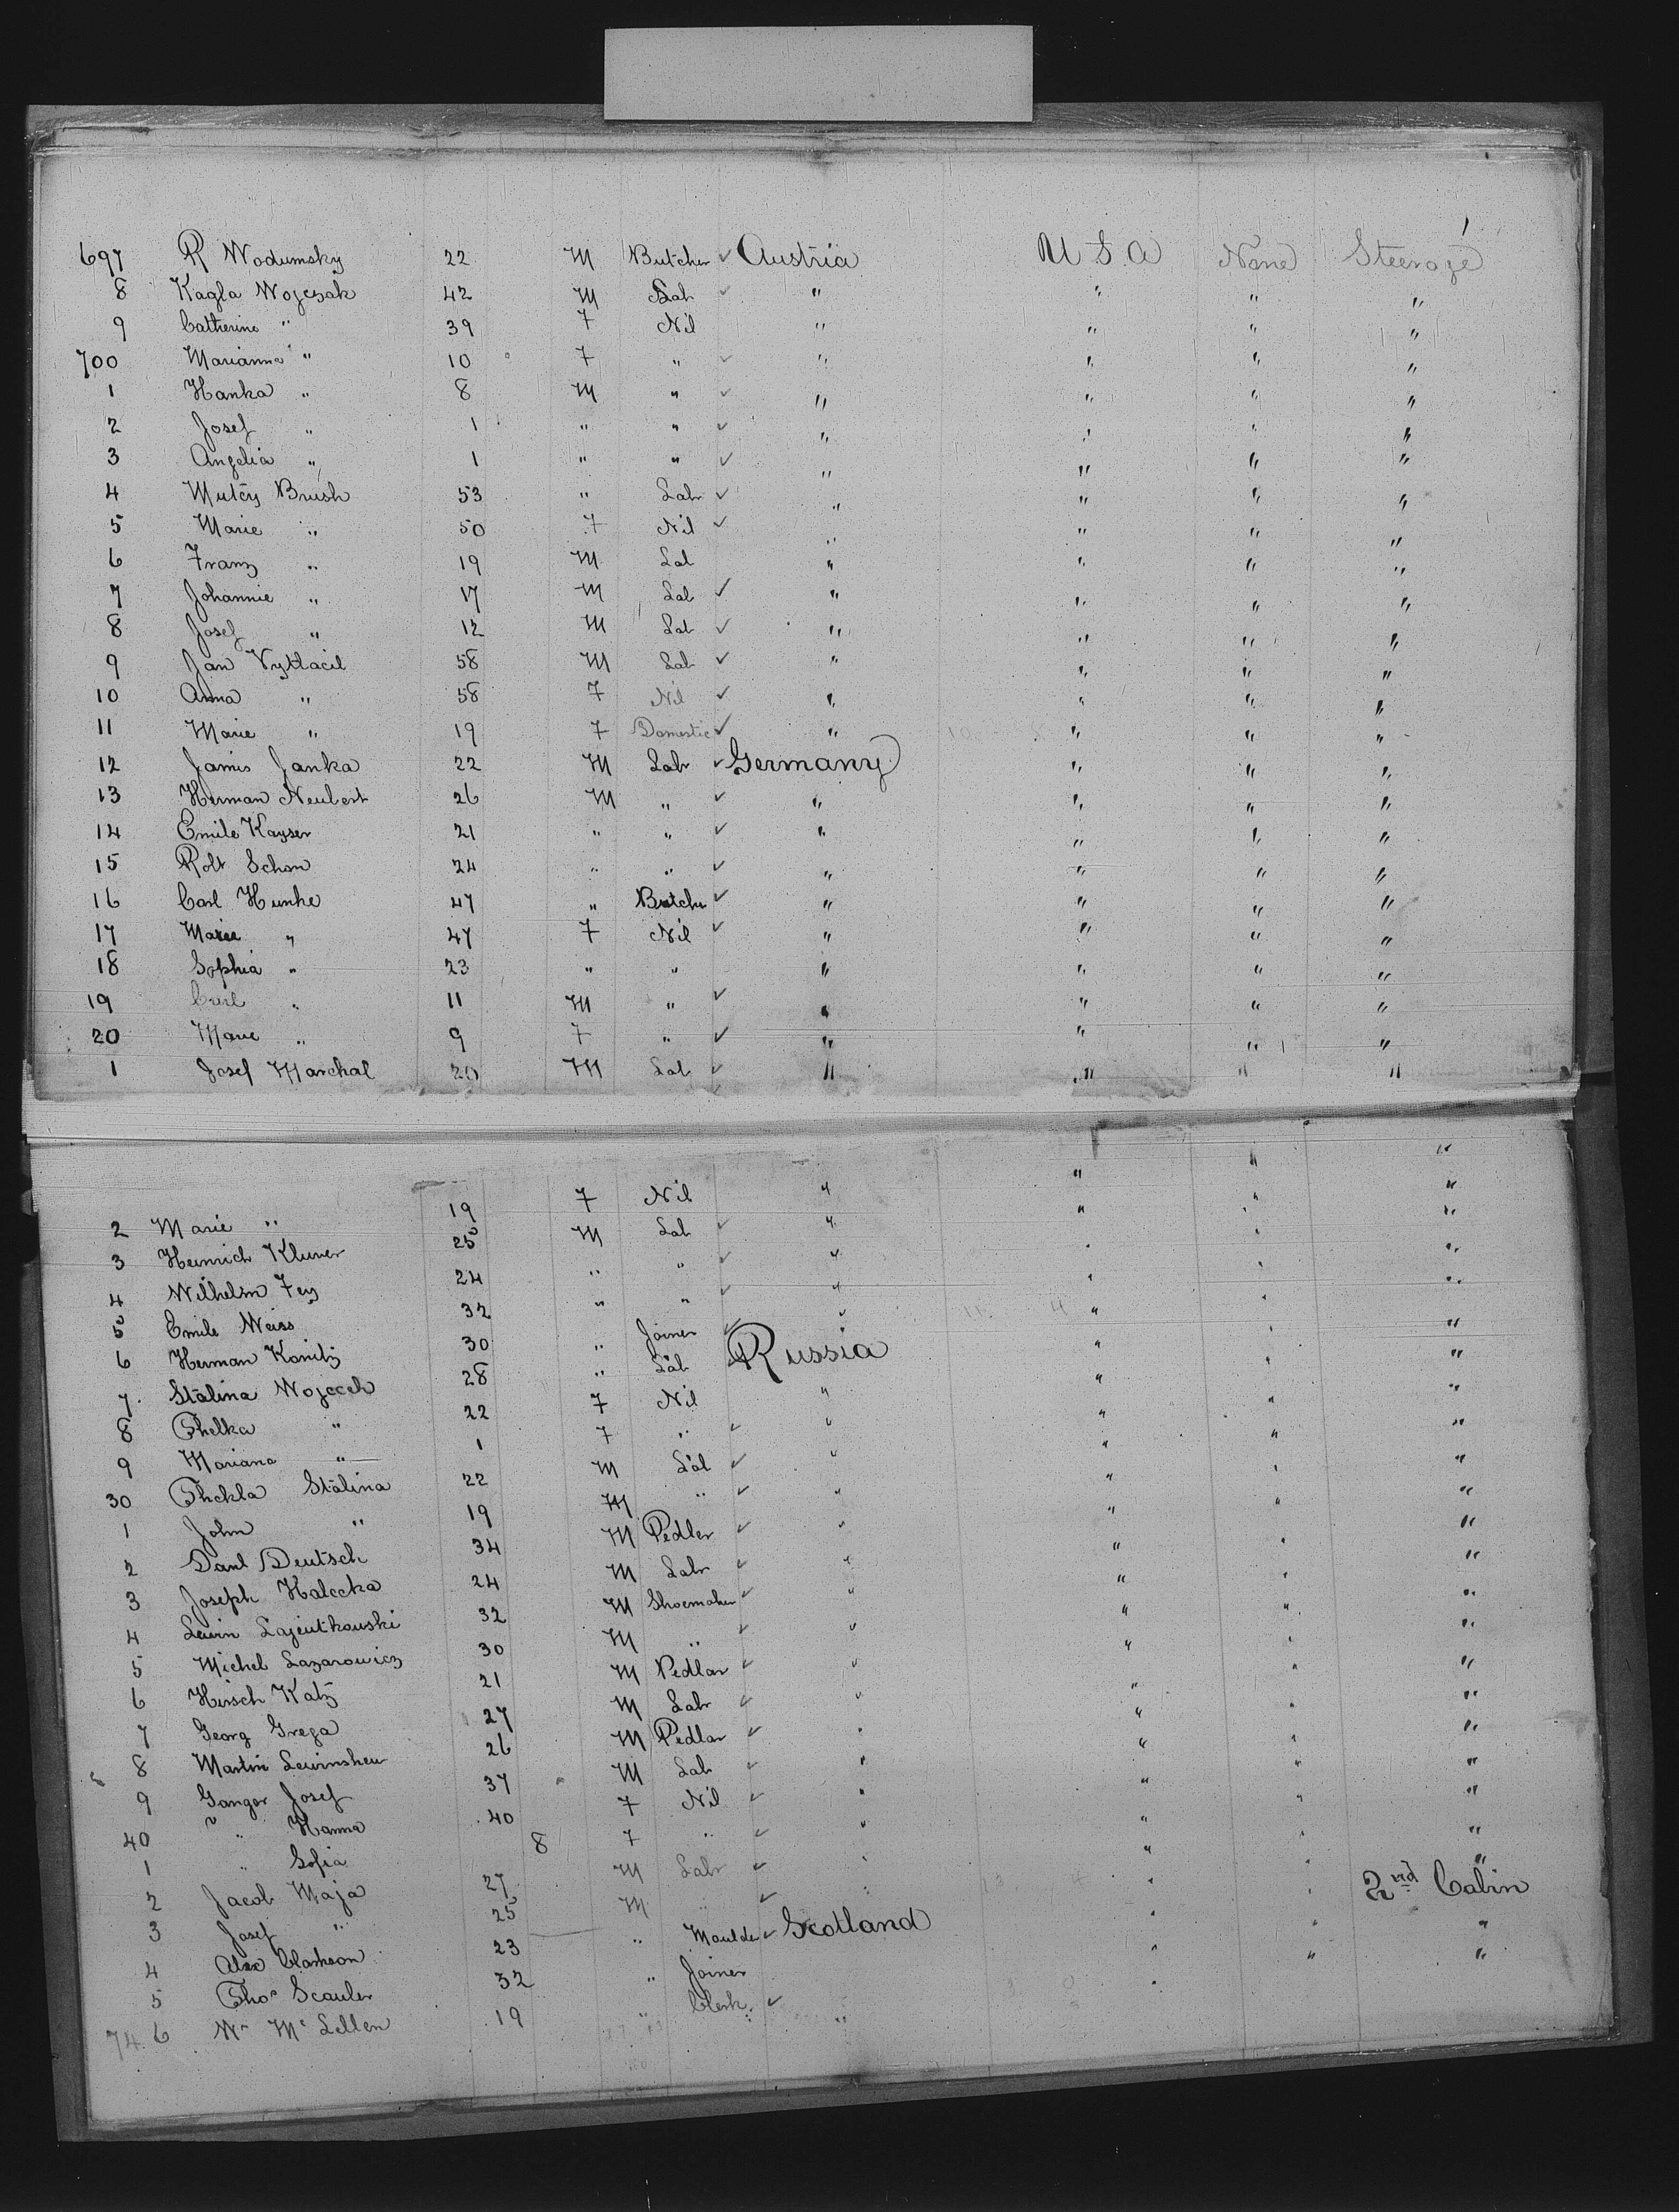 697 R Wodumsky 22 M Butcher ✓ Austria U.S.A None Steerage
8 Kagla Wojcsak 42 M Lab ✓ " " " "
9 Catherine " 39 F Nil " " " "
700 Marianna " 10 F " ✓ " " " "
1 Hanka " 8 M " ✓ " " " "
2 Josef " 1 " " ✓ " " " "
3 Angelia " 1 " " ✓ " " " "
4 Mutcy Brush 53 " Labr ✓ " " " "
5 Marie " 50 F Nil ✓ " " " "
6 Franz " 19 M Lab " " " "
7 Johannie " 17 M Lab ✓ " " " "
8 Josef " 12 M Lab ✓ " " " "
9 Jan Vyktacil 58 M Lab ✓ " " " "
10 Anna " 58 F Nil ✓ " " " "
11 Marie " 19 F Domestic ✓ " " " "
12 Jamis Janka 22 M Labr ✓ Germany " " "
13 Herman Neubert 26 M " ✓ " " " "
14 Emile Kayser 21 " " ✓ " " " "
15 Robt Schon 24 " " ✓ " " " "
16 Carl Hunhe 47 " Butcher ✓ " " " "
17 Marie " 47 F Nil ✓ " " " "
18 Sophia " 23 " " " " " "
19 Carl " 11 M " ✓ " " " "
20 Marie " 9 F " ✓ " " " "
1 Josef Marchal 20 M Lab ✓ " " " "
2 Marie " 19 F Nil " " " "
3 Heinrich Kluner 25 M Lab ✓ " " " "
4 Wilhelm Fey 24 " " ✓ " " " "
5 Emile Weiss 32 " " ✓ " " " "
6 Herman Konitz 30 " Joiner ✓ " " " "
7 Stalina Wojcech 28 " Lab ✓ Russia " " "
8 Thelka " 22 F Nil " " " "
9 Mariana " 1 F " ✓ " " " "
30 Thekla Stalina 22 M Lab ✓ " " " "
1 John " 19 M " ✓ " " " "
2 Danl Deutsch 34 M Pedler ✓ " " " "
3 Joseph Halecka 24 M Labr ✓ " " " "
4 Lewin Lajeutkouski 32 M Shoemaker ✓ " " " "
5 Michel Lazarowicz 30 M " ✓ " " " "
6 Hirsch Katz 21 M Pedlar ✓ " " " "
7 Georg Grega 27 M Labr ✓ " " " "
8 Martin Lewinsheu 26 M Pedlar ✓ " " " "
9 Gangor Josef 37 M Lab ✓ " " " "
40 " Hanna 40 F Nil ✓ " " " "
1 " Sofia 8 F " ✓ " " " "
2 Jacob Maja 27 M Labr ✓ " " " "
3 Josef " 25 M " ✓ " " " "
4 Alex Clarkson 23 " Moulder ✓ Scotland " " 2nd Cabin
5 Thos Scouler 32 " Joiner " " "
746 Wm McLellen 19 " Clerk ✓ " " " "